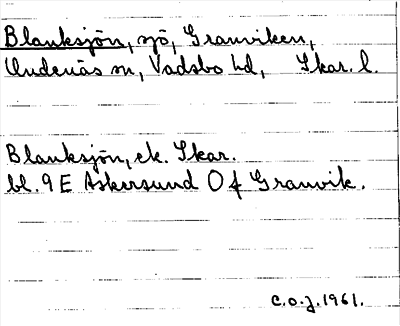 Blanksjön, sjö, Granviken,
Undenäs sn, Vadsbo hd, Skar. l.
Blanksjön, ek. Skar.
bl. 9 E Askersund O f Granvik.
C.O.J. 1961.